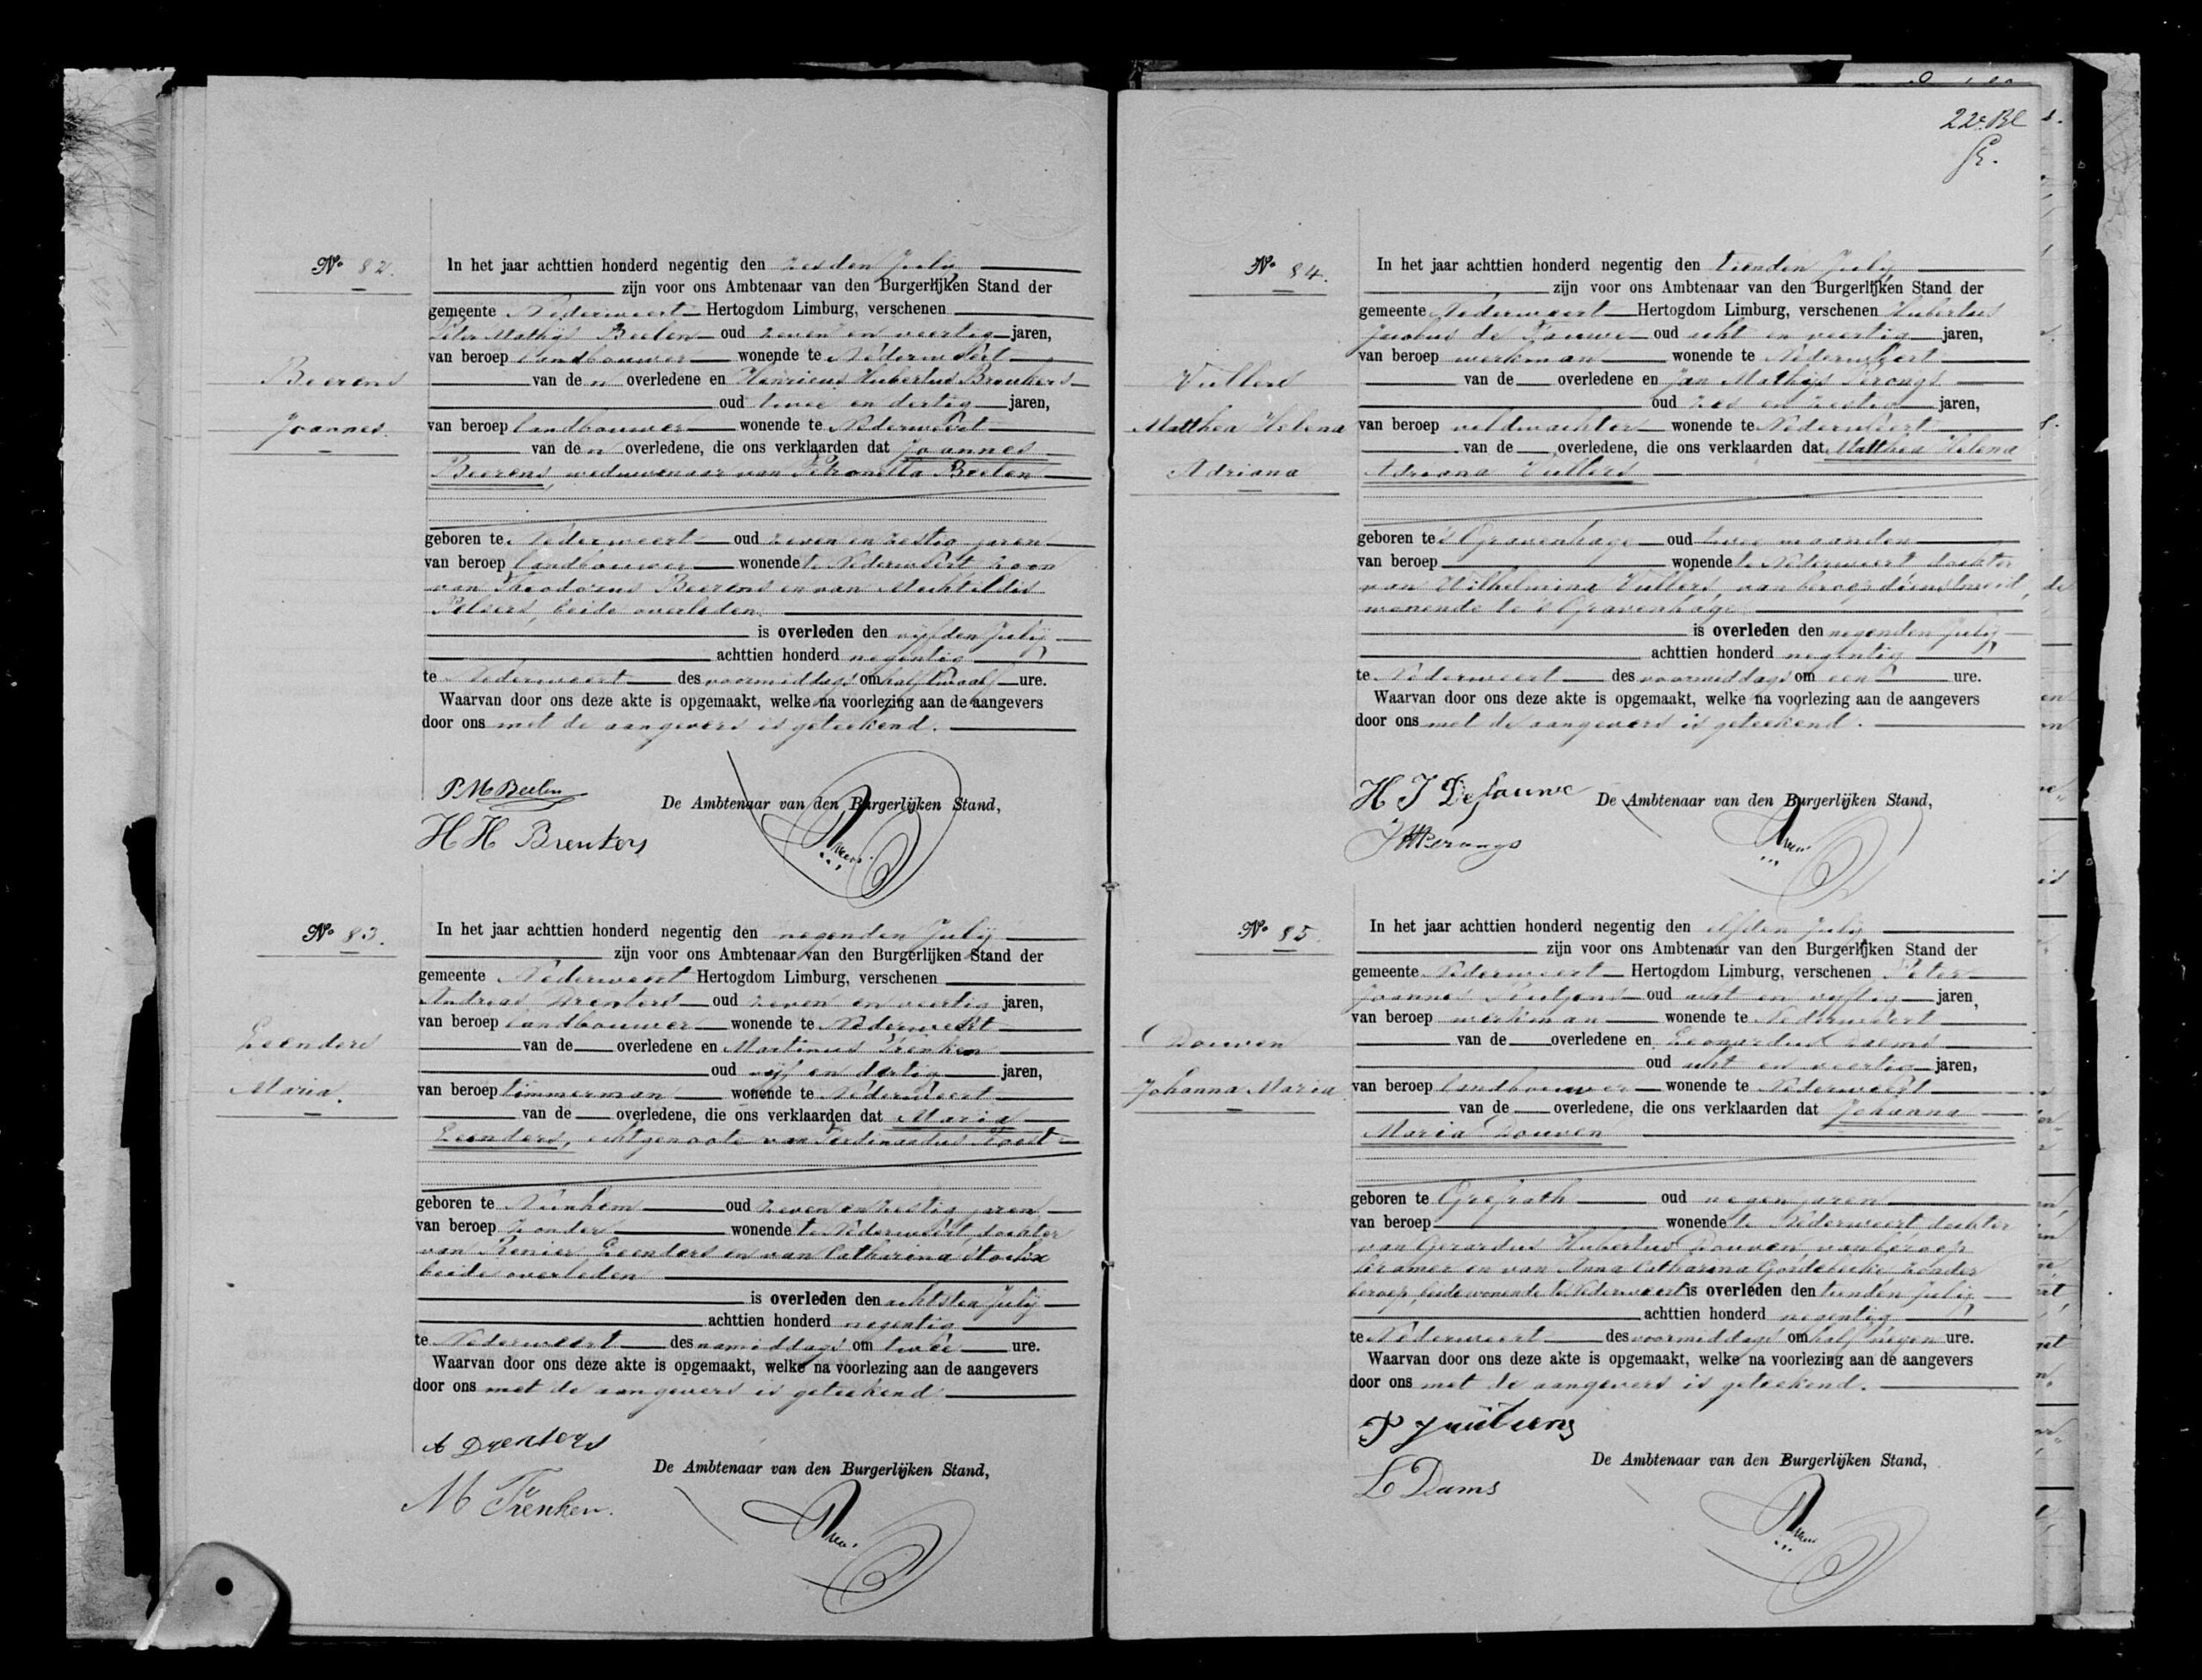 No 82.
Beerens
Joannes.
In het jaar achttien honderd negentig den zesden July
zijn voor ons Ambtenaar van den Burgerlijken Stand der
gemeente Nederweert Hertogdom Limburg, verschenen
Peter Mathijs Beelen oud zeven en veertig jaren,
van beroep landbouwer wonende te Nederweert
van den overledene en Henricus Hubertus Breukers
oud twee en dertig jaren,
van beroep landbouwer wonende te Nederweert
van den overledene, die ons verklaarden dat Joannes
Beerens, weduwenaar van Petronella Beelen
geboren te Nederweert oud zeven en zestig jaren
van beroep landbouwer wonende te Nederweert zoon
van Theodorus Beerens en van Mechtildis
Pelsers, beide overleden.
is overleden den vijfden July
achttien honderd negentig
te Nederweert des voormiddags om half twaalf ure.
Waarvan door ons deze akte is opgemaakt, welke na voorlezing aan de aangevers
door ons met de aangevers is geteekend.
P M Beelen
De Ambtenaar van den Burgerlijken Stand,
H H Breukers
No 83.
Leenders
Maria.
In het jaar achttien honderd negentig den negenden July
zijn voor ons Ambtenaar van den Burgerlijken Stand der
gemeente Nederweert Hertogdom Limburg, verschenen
Andreas Drenters oud zeven en veertig jaren,
van beroep landbouwer wonende te Nederweert
van de overledene en Martinus Trenken
oud vijf en dertig jaren,
van beroep timmerman wonende te Nederweert
van de overledene, die ons verklaarden dat Maria
Leenders, echtgenoote van Ferdinandus Koost
geboren te Nunhem oud zeven en zestig jaren
van beroep zonder wonende te Nederweert dochter
van Renier Leenders en van Catharina Stockx
beide overleden
is overleden den achtsten July
achttien honderd negentig
te Nederweert des namiddags om twee ure.
Waarvan door ons deze akte is opgemaakt, welke na voorlezing aan de aangevers
door ons met de aangevers is geteekend.
A Drenters
De Ambtenaar van den Burgerlijken Stand,
M Trenken.
22e Bl
No 84.
Vullers
Matthea Helena
Adriana
In het jaar achttien honderd negentig den tienden July
zijn voor ons Ambtenaar van den Burgerlijken Stand der
gemeente Nederweert Hertogdom Limburg, verschenen Hubertus
Jacobus de Fauwe oud acht en veertig jaren,
van beroep werkman wonende te Nederweert
van de overledene en Jan Mathijs Perongs
oud zes en zestig jaren,
van beroep veldwachter wonende te Nederweert
van de overledene, die ons verklaarden dat Matthea Helena
Adriana Vullers
geboren te 's Gravenhage oud twee maanden
van beroep wonende te Nederweert dochter
van Wilhelmina Vullers, van beroep dienstmeid,
wonende te 's Gravenhage
is overleden den negenden July
achttien honderd negentig
te Nederweert des voormiddags om een ure.
Waarvan door ons deze akte is opgemaakt, welke na voorlezing aan de aangevers
door ons met de aangevers is geteekend.
H J De fauwe
De Ambtenaar van den Burgerlijken Stand,
JM Perongs
No 85.
Douven
Johanna Maria.
In het jaar achttien honderd negentig den elfden July
zijn voor ons Ambtenaar van den Burgerlijken Stand der
gemeente Nederweert Hertogdom Limburg, verschenen Peter
Joannes oud acht en vijftig jaren,
van beroep werkman wonende te Nederweert
van de overledene en Leonardus Daems
oud acht en veertig jaren,
van beroep landbouwer wonende te Nederweert
van de overledene, die ons verklaarden dat Johanna
Maria Douven
geboren te Grefrath oud negen jaren
van beroep wonende te Nederweert dochter
van Gerardus Hubertus Douven van beroep
kramer en van Anna Catharina Gordebeeke zonder
beroep, beide wonende te Nederweert is overleden den tienden July
achttien honderd negentig
te Nederweert des voormiddags om half negen ure.
Waarvan door ons deze akte is opgemaakt, welke na voorlezing aan de aangevers
door ons met de aangevers is geteekend.
De Ambtenaar van den Burgerlijken Stand,
L Dams